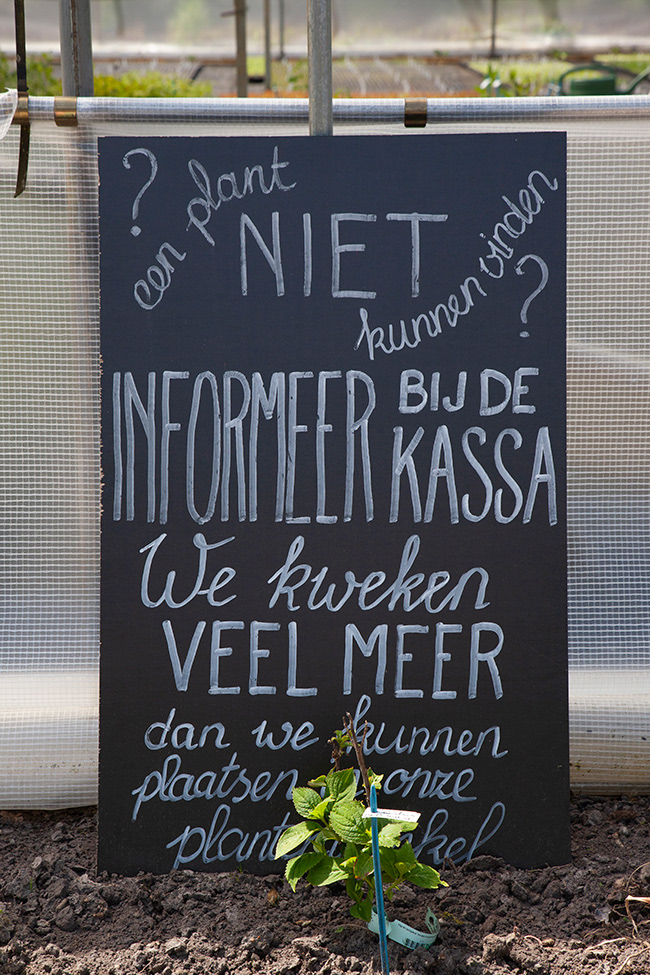 ? een plant
NIET
kunnen vinden ?
INFORMEER BIJ DE
KASSA
We kweken
VEEL MEER
dan we kunnen
plaatsen onze